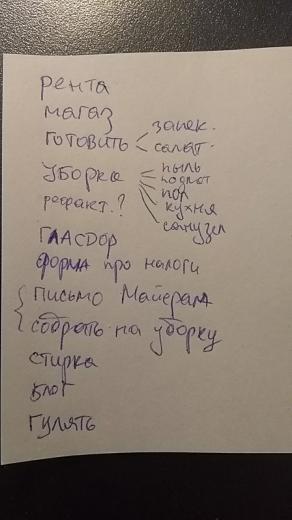 рента
магаз
готовить запек.
салат.
уборка пыль
подмот
пол
кухня
санузел
рефакт.?
гласдор
форма про налоги
письмо Майерам
собрать на уборку
стирка
блог
гулять